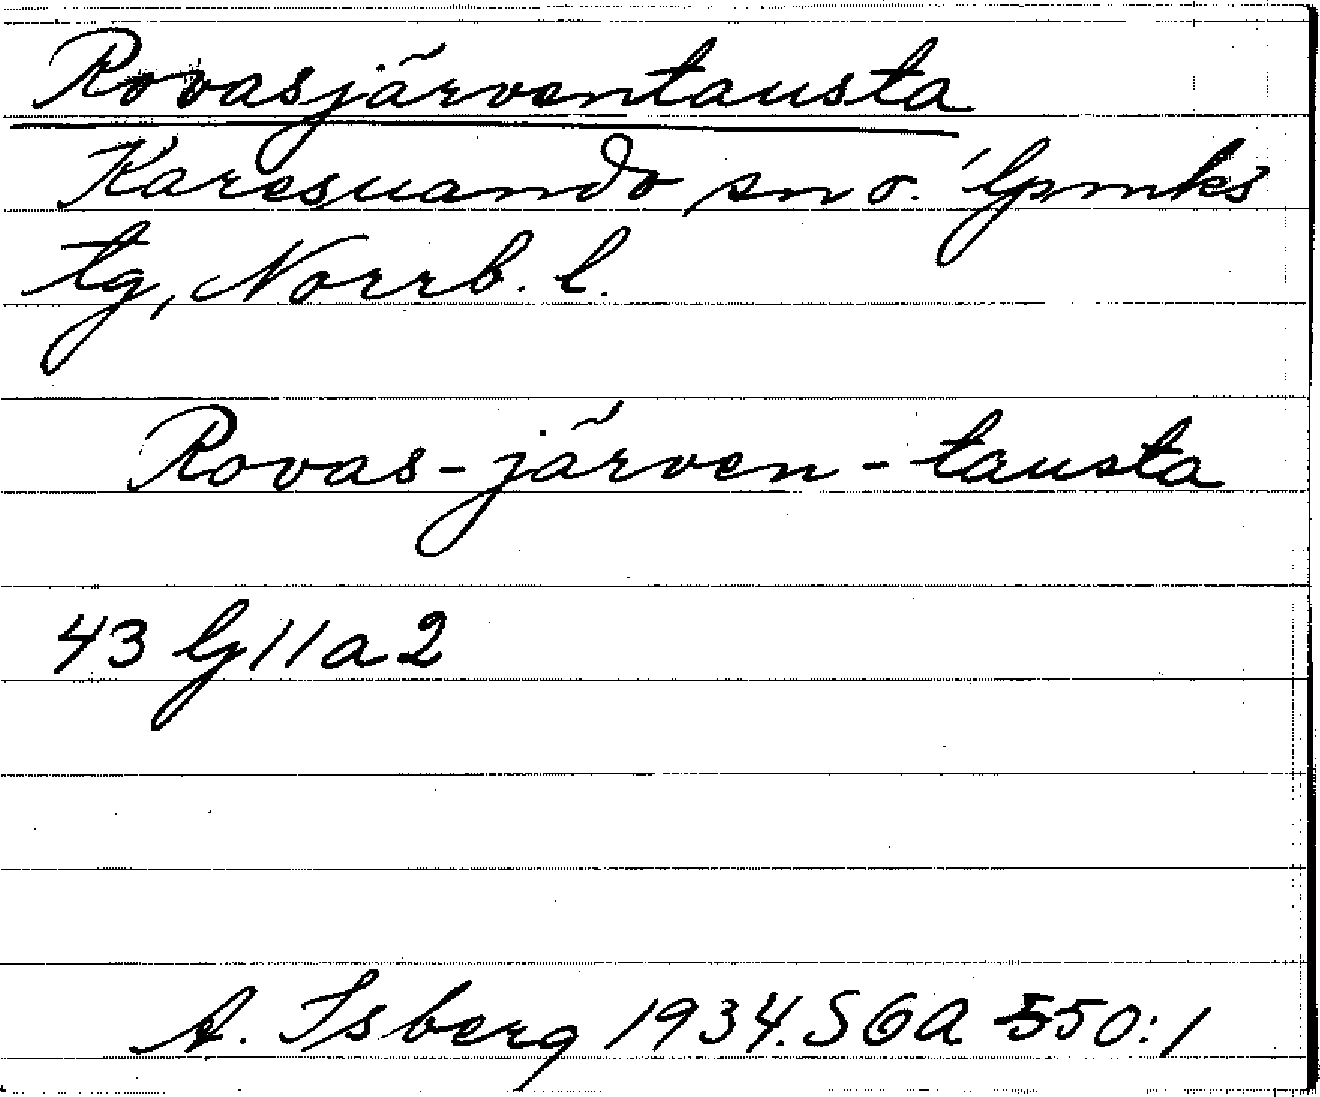 Rovasjärventausta
Karesuando sn o. lpmks
tg, Norrb. l.
Rovas-järven-tausta
43 lj 11 a 2
A. Isberg 1934. SOA 550:1